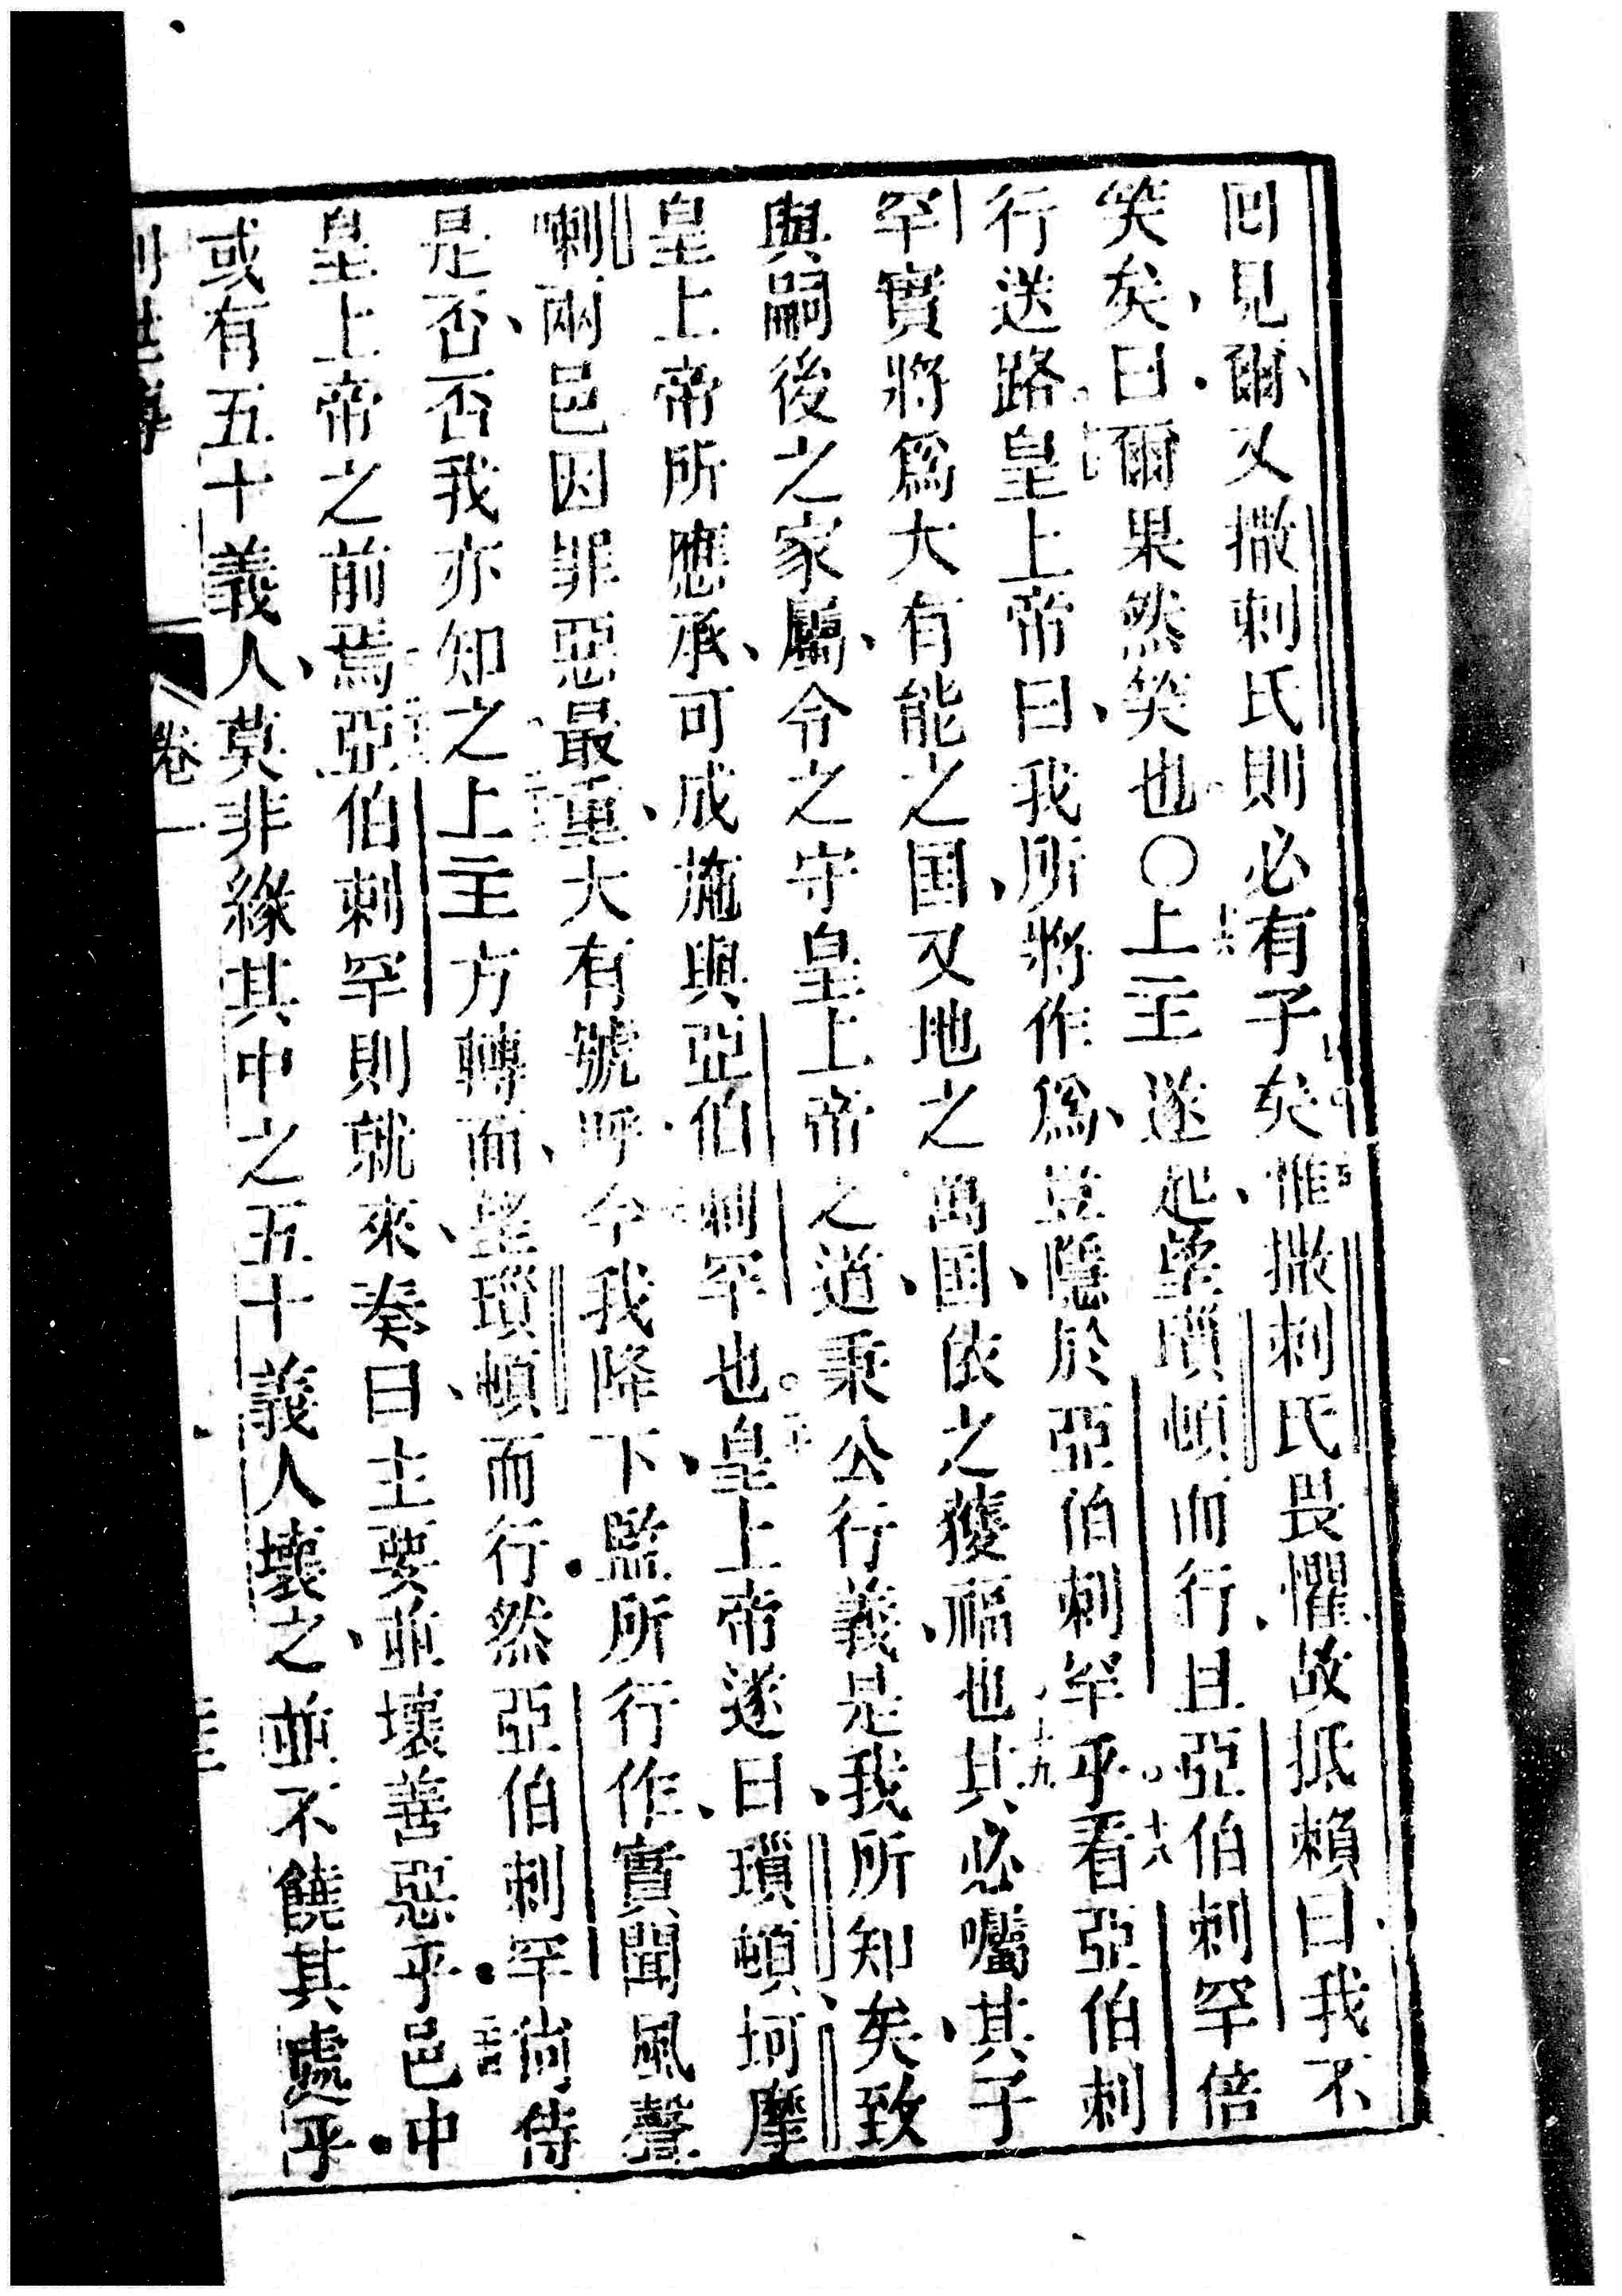 囘見爾、又撒剌氏則必有子矣惟撒剌氏畏懼故抵賴曰我不
笑矣、曰爾果然笑也○上主遂起、望瑣頓而行、且亞伯剌罕倍
行送路皇上帝曰、我所將作爲、豈隱於亞伯剌罕乎。十八看亞伯剌
罕實將爲大有能之国、又地之萬国、依之獲福也十九其必囑其子
與嗣後之家屬、令之守皇上帝之道、秉公行義、是我所知矣、致
皇上帝所應承、可成施與亞伯剌罕也。二十皇上帝遂曰、瑣頓、坷摩
喇兩邑因罪惡最重、大有號呼今我降下、監所行作、實聞風聲
是否、否我亦知之上主方轉面、望瑣頓而行然亞伯剌罕尙侍
皇上帝之前焉亞伯剌罕則就來、奏曰、主要並壞善惡乎邑中
或有五十義人、莫非緣其中之五十義人壞之、並不饒其處乎
卷一